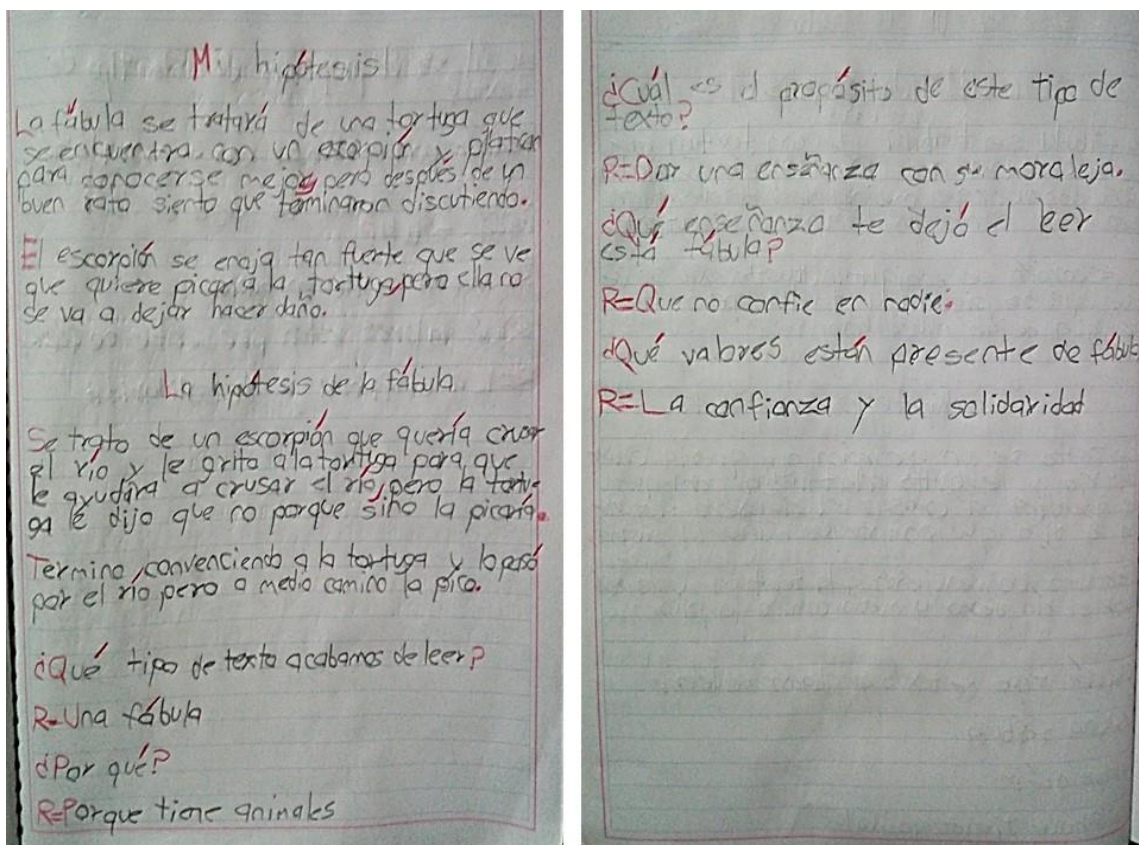 Mi hipótesis
La fábula se tratará de una tortuga que
se encuentra con un escorpión y platican
para conocerse mejor, pero después de un
buen rato siento que terminaron discutiendo.
El escorpión se enoja tan fuerte que se ve
que quiere picar a la tortuga, pero ella no
se va a dejar hacer daño.
La hipótesis de la fábula
Se trato de un escorpión que quería cruzar
el río y le grito a la tortuga para que
le ayudára a crusar el río, pero la tortu-
ga le dijo que no porque sino la picaría.
Termino, convenciendo a la tortuga y lo pasó
por el río pero a medio camino la pico.
¿Qué tipo de texto acabamos de leer?
R=Una fábula
¿Por qué?
R=Porque tiene animales
¿Cuál es el propósito de este tipo de
texto?
R=Dar una enseñanza con su moraleja.
¿Qué enseñanza te dejó el leer
está fábula?
R=Que no confie en nadie.
¿Qué valores están presente de fábula
R=La confianza y la solidaridad